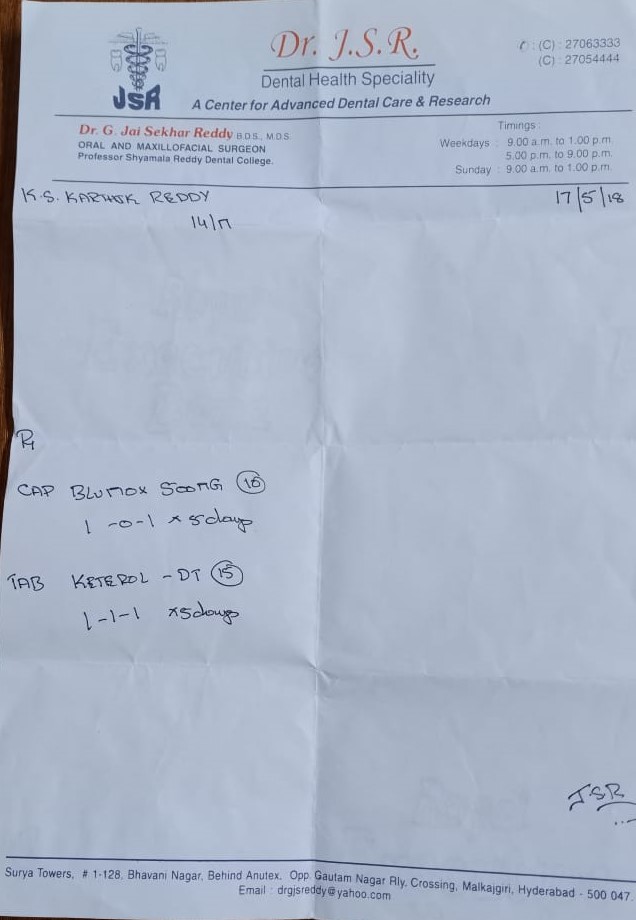 JSR
Dr. J.S.R.
Dental Health Speciality
A Center for Advanced Dental Care & Research
✆ : (C) : 27063333
(C) : 27054444
Dr. G. Jai Sekhar Reddy B.D.S., M.D.S.
ORAL AND MAXILLOFACIAL SURGEON
Professor Shyamala Reddy Dental College.
Timings :
Weekdays : 9.00 a.m. to 1.00 p.m.
5.00 p.m. to 9.00 p.m.
Sunday : 9.00 a.m. to 1.00 p.m.
K.S. KARTHIK REDDY
17/5/18
14/M
Rx
CAP BLUMOX 500MG
1 -0-1 × 5days
TAB KETEROL - DT (15)
1-1-1 ×5days
JSR
Surya Towers, # 1-128, Bhavani Nagar, Behind Anutex, Opp. Gautam Nagar Rly. Crossing, Malkajgiri, Hyderabad - 500 047.
Email : drgjsreddy@yahoo.com